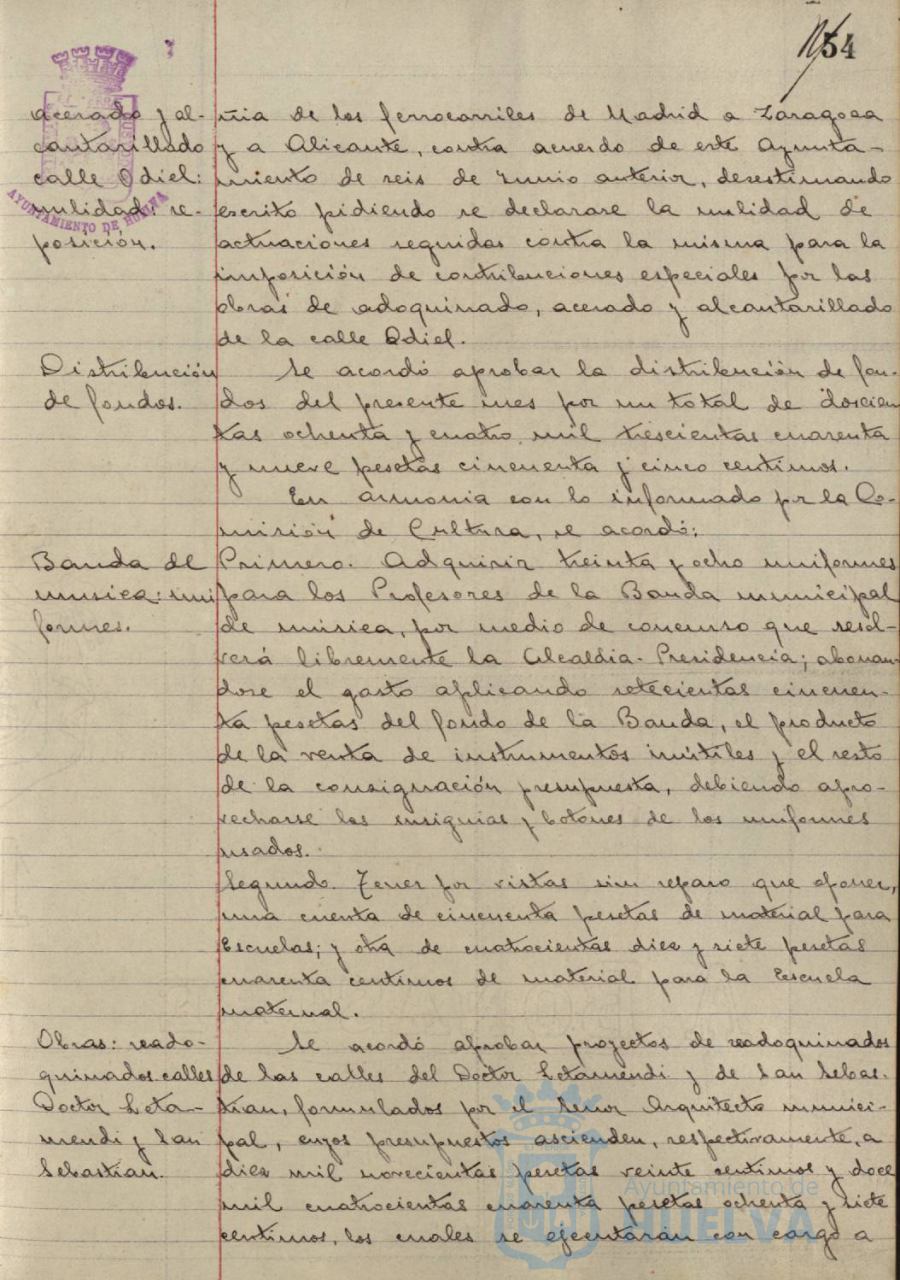 54
acerado y al-
cantarillado
calle Odiel:
nulidad: re-
posición.
AYUNTAMIENTO DE HUELVA
ñia de los ferrocarriles de Madrid a Zaragoza
y a Alicante, contra acuerdo de este Ayunta-
miento de seis de Junio anterior, desestimando
escrito pidiendo se declarase la nulidad de
actuaciones seguidas contra la misma para la
imposición de contribuciones especiales por las
obras de adoquinado, acerado y alcantarillado
de la calle Odiel.
Distribución
de fondos.
Se acordó aprobar la distribución de fon-
dos del presente mes por un total de doscien
tas ochenta y cuatro mil trescientas cuarenta
y nueve pesetas cincuenta y cinco centimos.
En armonia con lo informado pr la Co-
misión de Cultura, se acordó:
Banda de
musica: uni
formes.
Primero. Adquirir treinta y ocho uniformes
para los Profesores de la Banda municipal
de música, por medio de concurso que resol-
verá libremente la Alcaldia-Presidencia; abonan-
dose el gasto aplicando setecientas cincuen-
ta pesetas del fondo de la Banda, el producto
de la venta de instrumentos inútiles y el resto
de la consignación presupuesta, debiendo apro-
vecharse las insignias y botones de los uniformes
usados.
Segundo. Tener por vistas sin reparo que oponer,
una cuenta de cincuenta pesetas de material para
Escuelas; y otra de cuatrocientas diez y siete pesetas
cuarenta centimos de material para la Escuela
maternal.
Obras: reado-
quinados calles
Doctor Leta-
mendi y San
Sebastian.
Se acordó aprobar proyectos de readoquinados
de las calles del Doctor Letamendi y de San Sebas-
tian, formulados por el Señor Arquitecto munici-
pal, cuyos presupuestos ascienden, respectivamente, a
diez mil novecientas pesetas veinte centimos y doce
mil cuatrocientas cuarenta pesetas ochenta y siete
centimos, los cuales se ejecutarán con cargo a
Ayuntamiento de
HUELVA